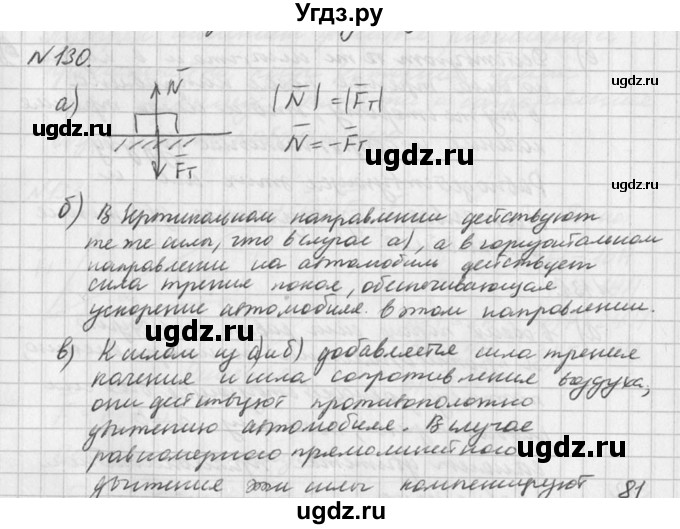 УГДЗ.РУ
N130.
а) N̄ |N̄| = |F̄т|
N̄ = -F̄т
F̄т
б) В вертикальном направлении действуют
те же силы, что в случае а), а в горизонтальном
направлении на автомобиль действует
сила трения покоя, обеспечивающая
ускорение автомобиля в этом направлении.
в) К силам из а) и б) добавляется сила трения
качения и сила сопротивления воздуха,
они действуют противоположно
движению автомобиля. В случае
равномерного прямолинейного
движения эти силы компенсируют 81
ugdz.ru
ugdz.ru
ugdz.ru
ugdz.ru
ugdz.ru
ugdz.ru
ugdz.ru
ugdz.ru
Угдз.ру